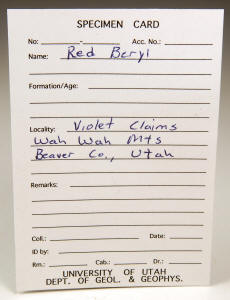 SPECIMEN CARD
No: - Acc. No.:
Name: Red Beryl
Formation/Age:
Locality: Violet Claims
Wah Wah Mts
Beaver Co., Utah
Remarks:
Coll.: Date:
ID by:
Rm.: Cab.: Dr.:
UNIVERSITY OF UTAH
DEPT. OF GEOL. & GEOPHYS.